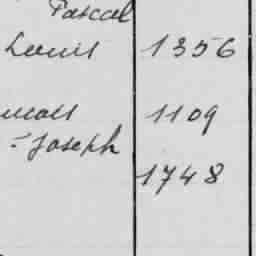 Pascal
Louis 1356
1109
- Joseph
1748